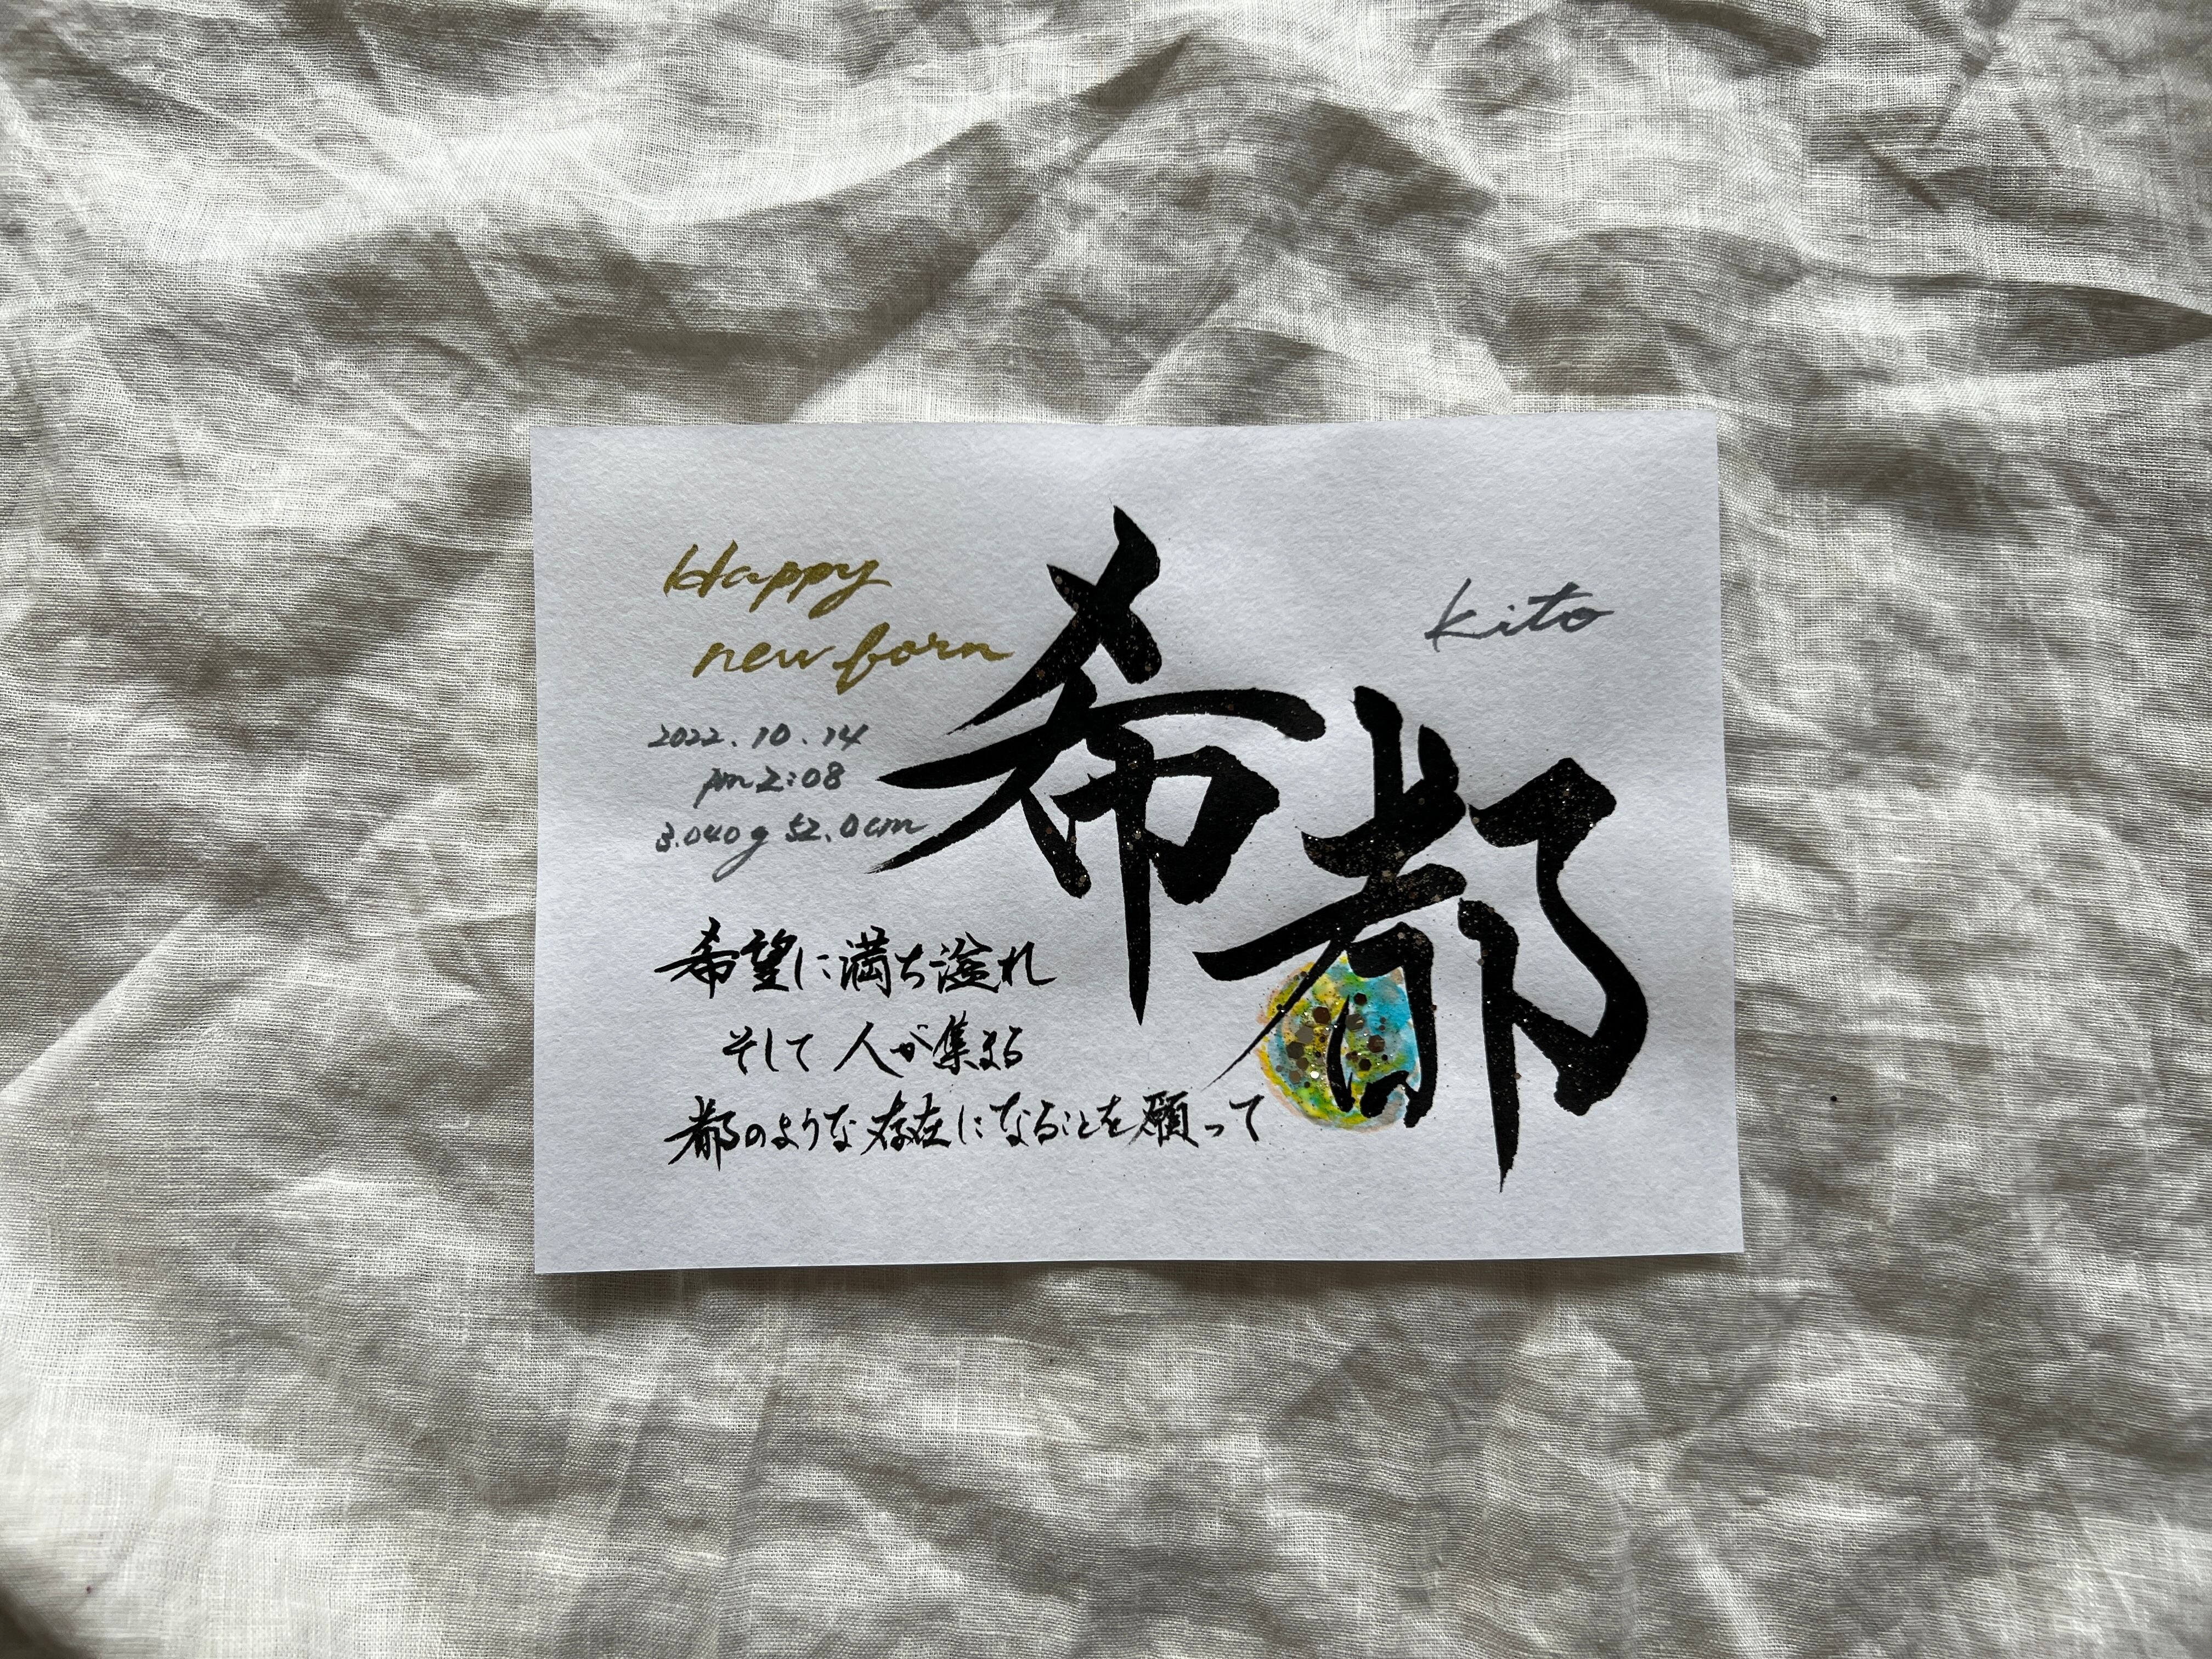 Happy
new born
2022.10.14
pm 2:08
3.040g 52.0cm
希都
kito
希望に満ち溢れ
そして人が集まる
都のような存在になることを願って